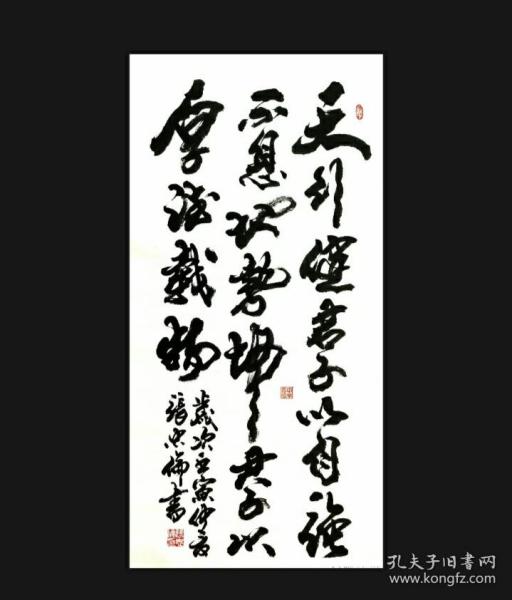 天行健君子以自强
不息地势坤君子以
厚德载物
岁次壬寅仲夏
張忠倫書
孔夫子旧书网
www.kongfz.com